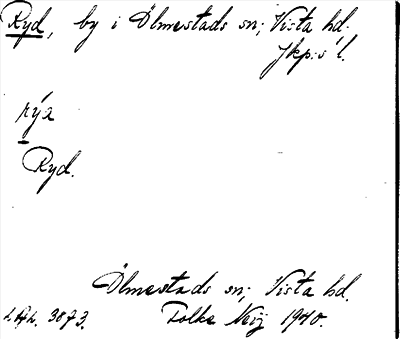 Ryd, by i Ölmestads sn; Vista hd.
Jkp:s l.
Ryd.
Ölmestads sn; Vista hd.
3873. Folke 1940.